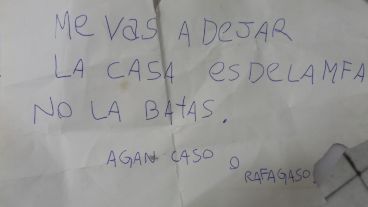 ME VAS A DEJAR
LA CASA ES DE LA MFA
NO LA BATAS.
AGAN CASO O
RAFAGASO.